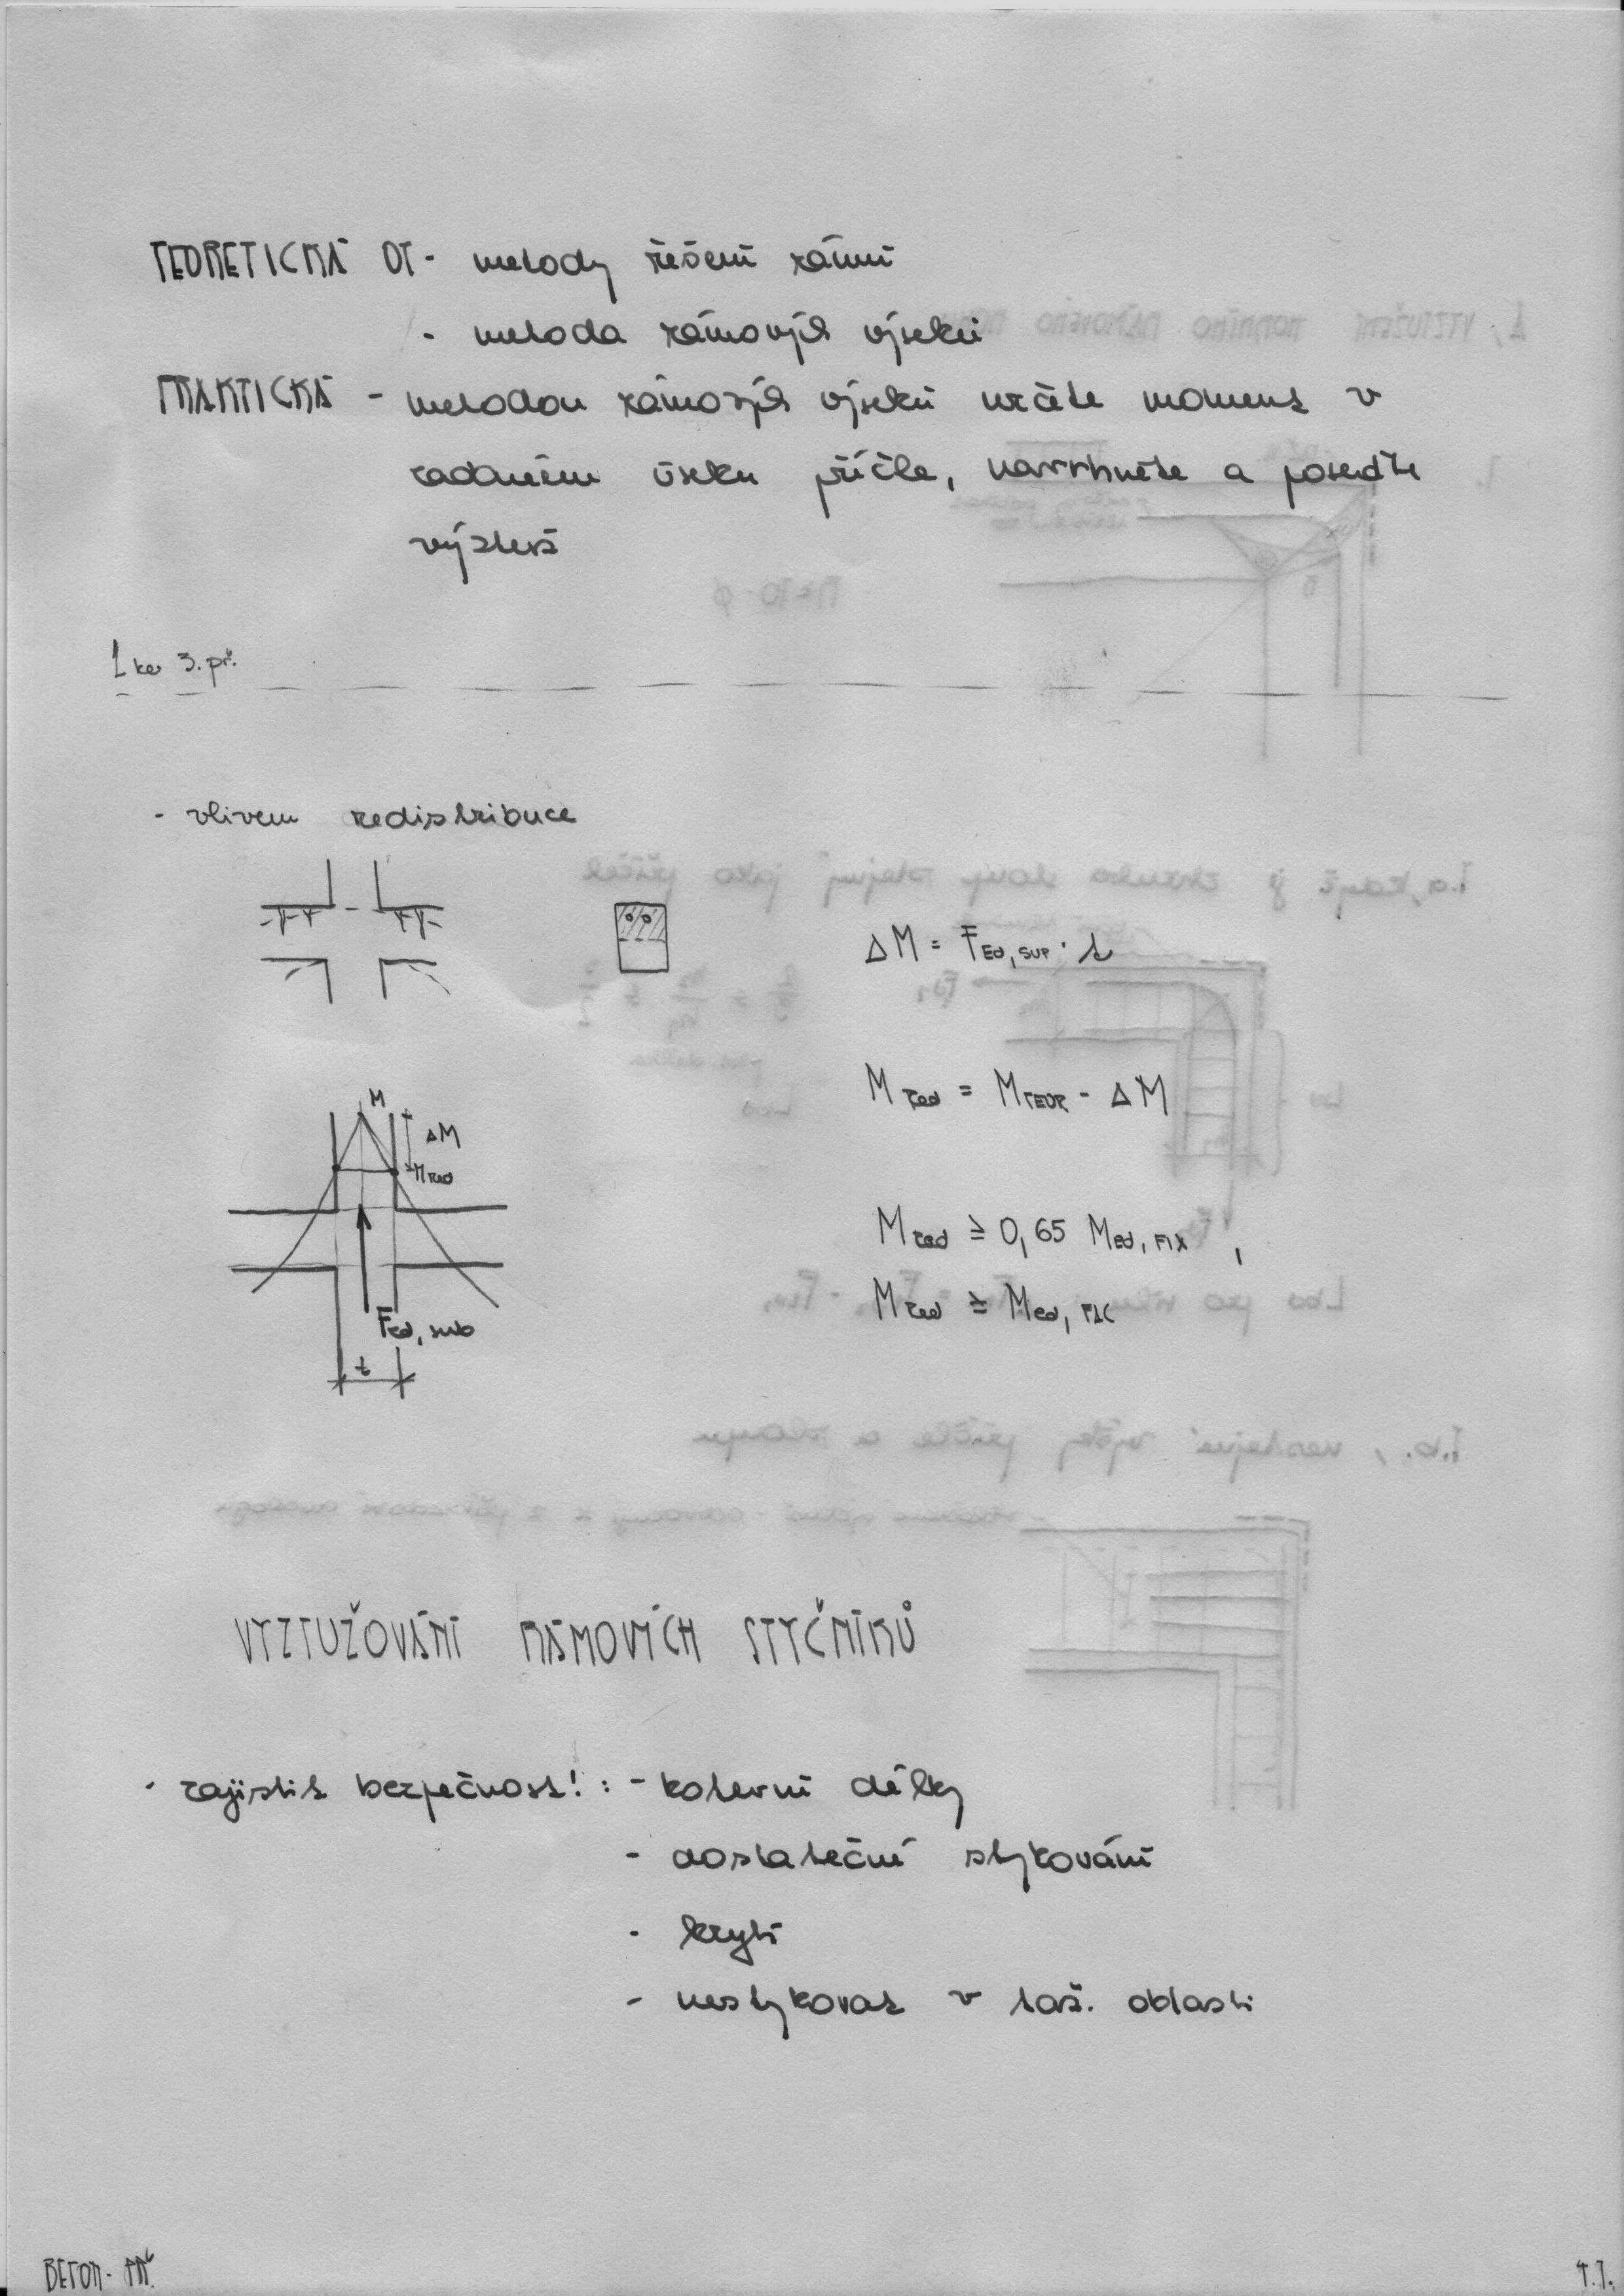 TEORETICKÁ OT - metody řešení rámů
- metoda rámových výseků
PRAKTICKÁ - metodou rámových výseků určete moment v
zadaném úseku příčle, navrhněte a posuďte
výztuž
3. př.
- vlivem redistribuce
ΔM = FEd,SUP · t
Mred = MTEOR - ΔM
M
ΔM
Mred
Mred ≥ 0,65 MEd,FIX ,
Mred ≥ MEd,
FEd,sub
t
VYZTUŽOVÁNÍ RÁMOVÝCH STYČNÍKŮ
- zajistit bezpečnost! : - kotevní délky
- dostatečné stykování
- krytí
- nestykovat v taž. oblasti
BETON - PŘ.